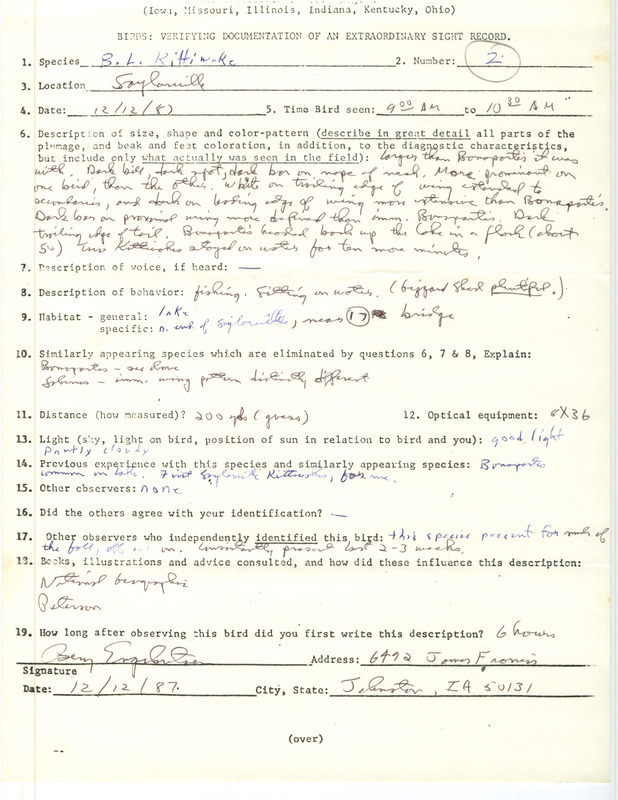 (Iowa, Missouri, Illinois, Indiana, Kentucky, Ohio)
BIRDS: VERIFYING DOCUMENTATION OF AN EXTRAORDINARY SIGHT RECORD.
1. Species B. L. Kittiwake 2. Number: 2
3. Location Saylorville
4. Date: 12/12/87 5. Time Bird seen: 9 00 AM to 10 30 AM
6. Description of size, shape and color-pattern (describe in great detail all parts of the
plumage, and beak and feet coloration, in addition, to the diagnostic characteristics,
but include only what actually was seen in the field): larger than Bonapartes it was
with. Dark bill, dark spot, dark bar on nape of neck. More prominent on
one bird, than the other. White on trailing edge of wing extended to
secondaries, and dark on leading edge of wing more extensive than Bonaparte's.
Dark bar on proximal wing more defined than imm. Bonapartes. Dark
trailing edge of tail. Bonapartes headed back up the lake in a flock (about
50) Kittiwakes stayed on water for ten more minutes.
7. Description of voice, if heard: —
8. Description of behavior: fishing. Sitting on water. (Gizzard Shad plentiful.)
9. Habitat - general: lake
specific: n. end of Saylorville, near 17 bridge
10. Similarly appearing species which are eliminated by questions 6, 7 & 8, Explain:
Bonapartes - see above
Sabines - imm. wing pattern distinctly different
11. Distance (how measured)? 200 yds (guess) 12. Optical equipment: 8X36
13. Light (sky, light on bird, position of sun in relation to bird and you): good light
partly cloudy
14. Previous experience with this species and similarly appearing species: Bonapartes
common on lake. First Saylorville Kittiwakes, for me.
15. Other observers: none
16. Did the others agree with your identification? —
17. Other observers who independently identified this bird: this species present for much of
the fall, off and on. Consistently present last 2-3 weeks.
18. Books, illustrations and advice consulted, and how did these influence this description:
National Geographic
Peterson
19. How long after observing this bird did you first write this description? 6 hours
Address: 6492
Signature
Date: 12/12/87. City, State: Johnston, IA 50131
(over)